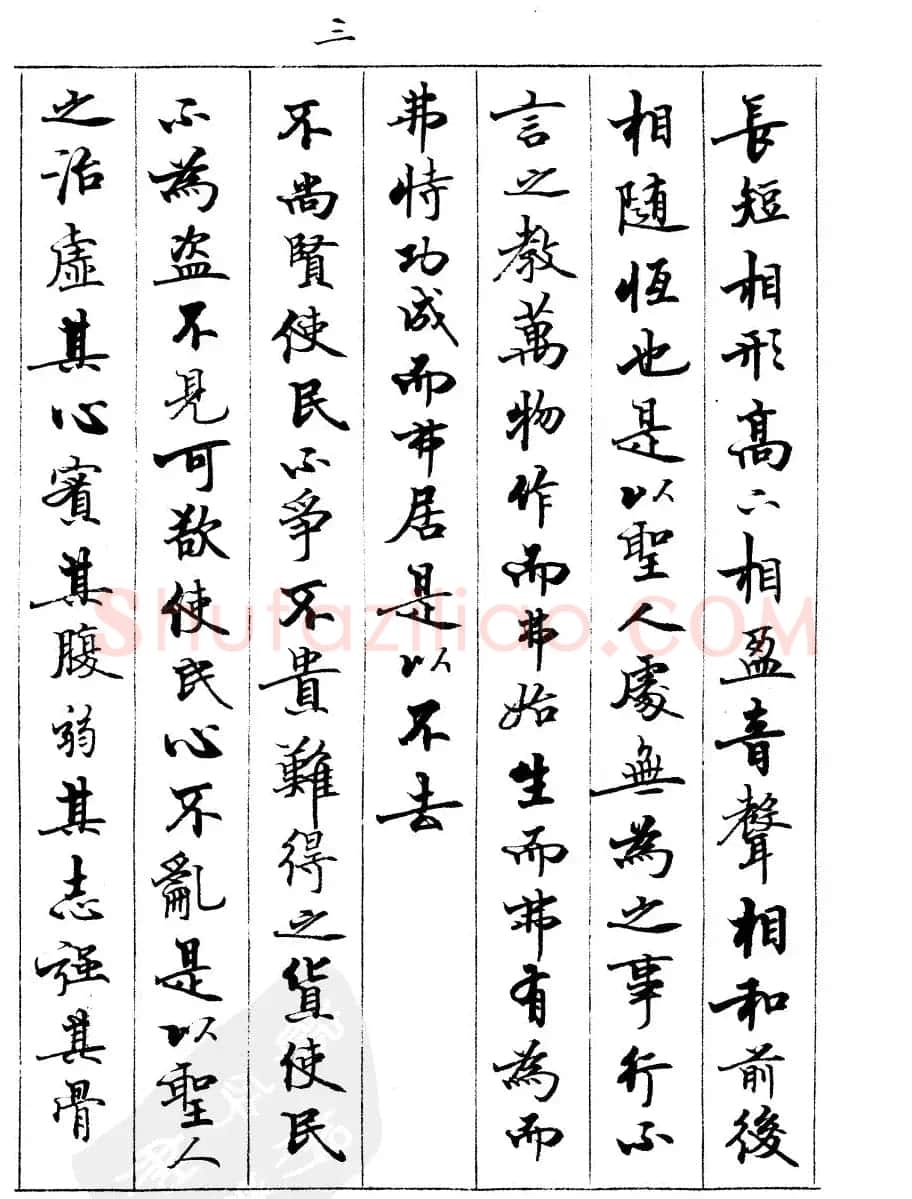 三
長短相形高下相盈音聲相和前後
相随恆也是以聖人處無為之事行不
言之教萬物作而弗始生而弗有為而
弗恃功成而弗居是以不去
不尚賢使民不爭不貴難得之貨使民
不為盜不見可欲使民心不亂是以聖人
之治虛其心實其腹弱其志强其骨
Shufaziliao.COM